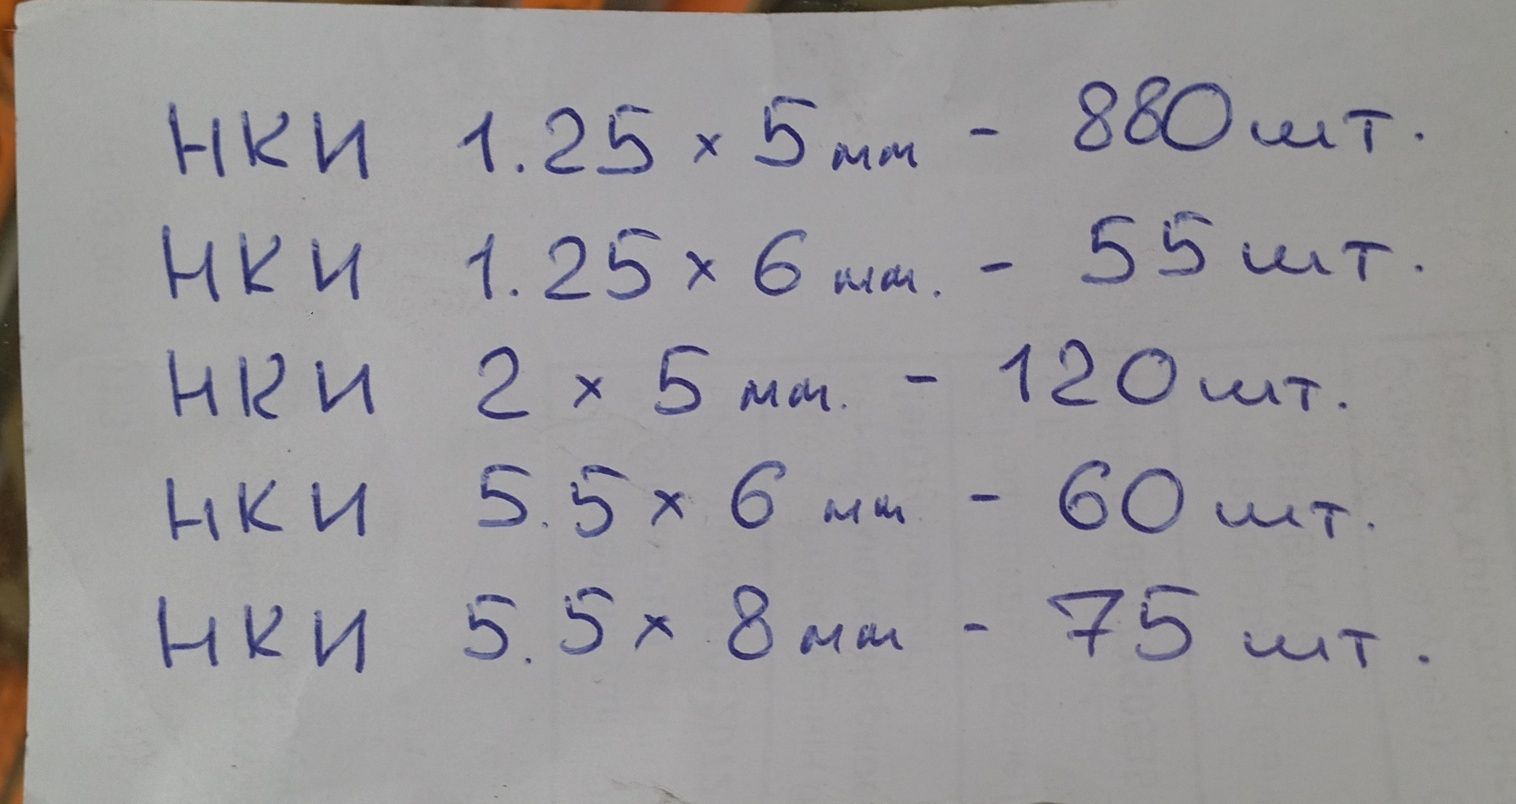 НКИ 1.25 × 5 мм - 880 шт.
НКИ 1.25 × 6 мм. - 55 шт.
НКИ 2 × 5 мм. - 120 шт.
НКИ 5.5 × 6 мм - 60 шт.
НКИ 5.5 × 8 мм - 75 шт.